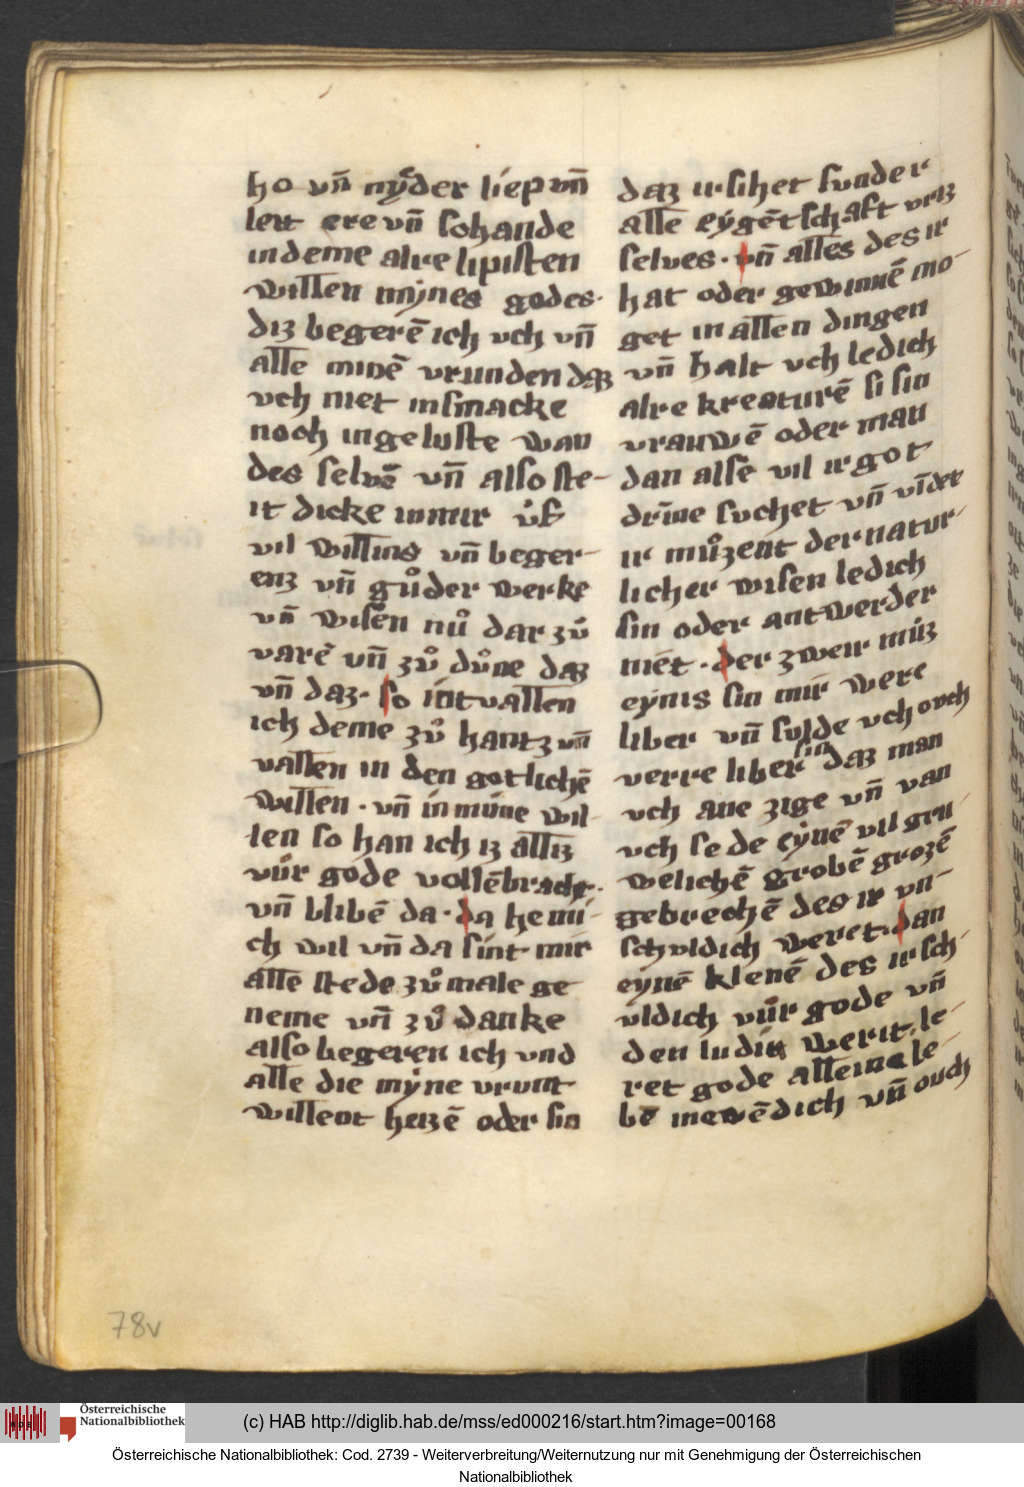 ho vn̄ nyder liep vn̄
leit ere vn̄ schande
in deme alre lipisten
willen mynes godes·
diz begerē ich vch vn̄
alle minē vrunden daz
vch niet insmacke
noch in geluste wan
des selvē vn̄ also ste-
it dicke in mir vf
vil willins vn̄ beger-
enz vn̄ gůder werke
vn̄ wisēn nů dar zů
varē vn̄ zů důne daz
vn̄ daz· so intvallen
ich deme zů hantz vn̄
vallen in den gotlichē
willen · vn̄ in mine wil-
len so han ich iz alliz
vúr gode vollēbracht·
vn̄ blibē da· da he mi-
ch wil vn̄ da sint mir
alle stede zů male ge
neme vn̄ zů danke
also begeren ich vnd
alle die myne vrunt
willent heizē oder sin
daz ir sihet sunder
alle eygēt schaft vriz
selves· vn̄ alles des ir
hat oder gewinnē mo-
get in allen dingen
vn̄ halt vch ledich
alre kreaturē si sin
vrauwē oder man
dan alse vil ir got
drīne suchet vn̄ vīdet
ir můzent der natur-
licher wisen ledich
sin oder antwerder
niet· der zweir můz
eynis sin mir were
liber vn̄ sulde vch ouch
verre liber sin daz man
vch ane zige vn̄ van
vch sede eynē vil greu-
welichē grobē grozē
gebrechē des ir vn-
schuldich weret· dan
eynē klenē des ir sch-
uldich vúr gode vn̄
den ludin werit· le-
ret gode alleine le-
bē inwēdich vn̄ ouch
78v
Österreichische
Nationalbibliothek
(c) HAB http://diglib.hab.de/mss/ed000216/start.htm?image=00168
Österreichische Nationalbibliothek: Cod. 2739 - Weiterverbreitung/Weiternutzung nur mit Genehmigung der Österreichischen
Nationalbibliothek